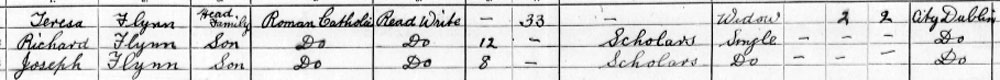 Teresa Flynn Head Family Roman Catholic Read Write – 33 – Widow 2 2 City Dublin
Richard Flynn Son Do Do 12 – Scholars Single – – – Do
Joseph Flynn Son Do Do 8 – Scholars Do – – – Do